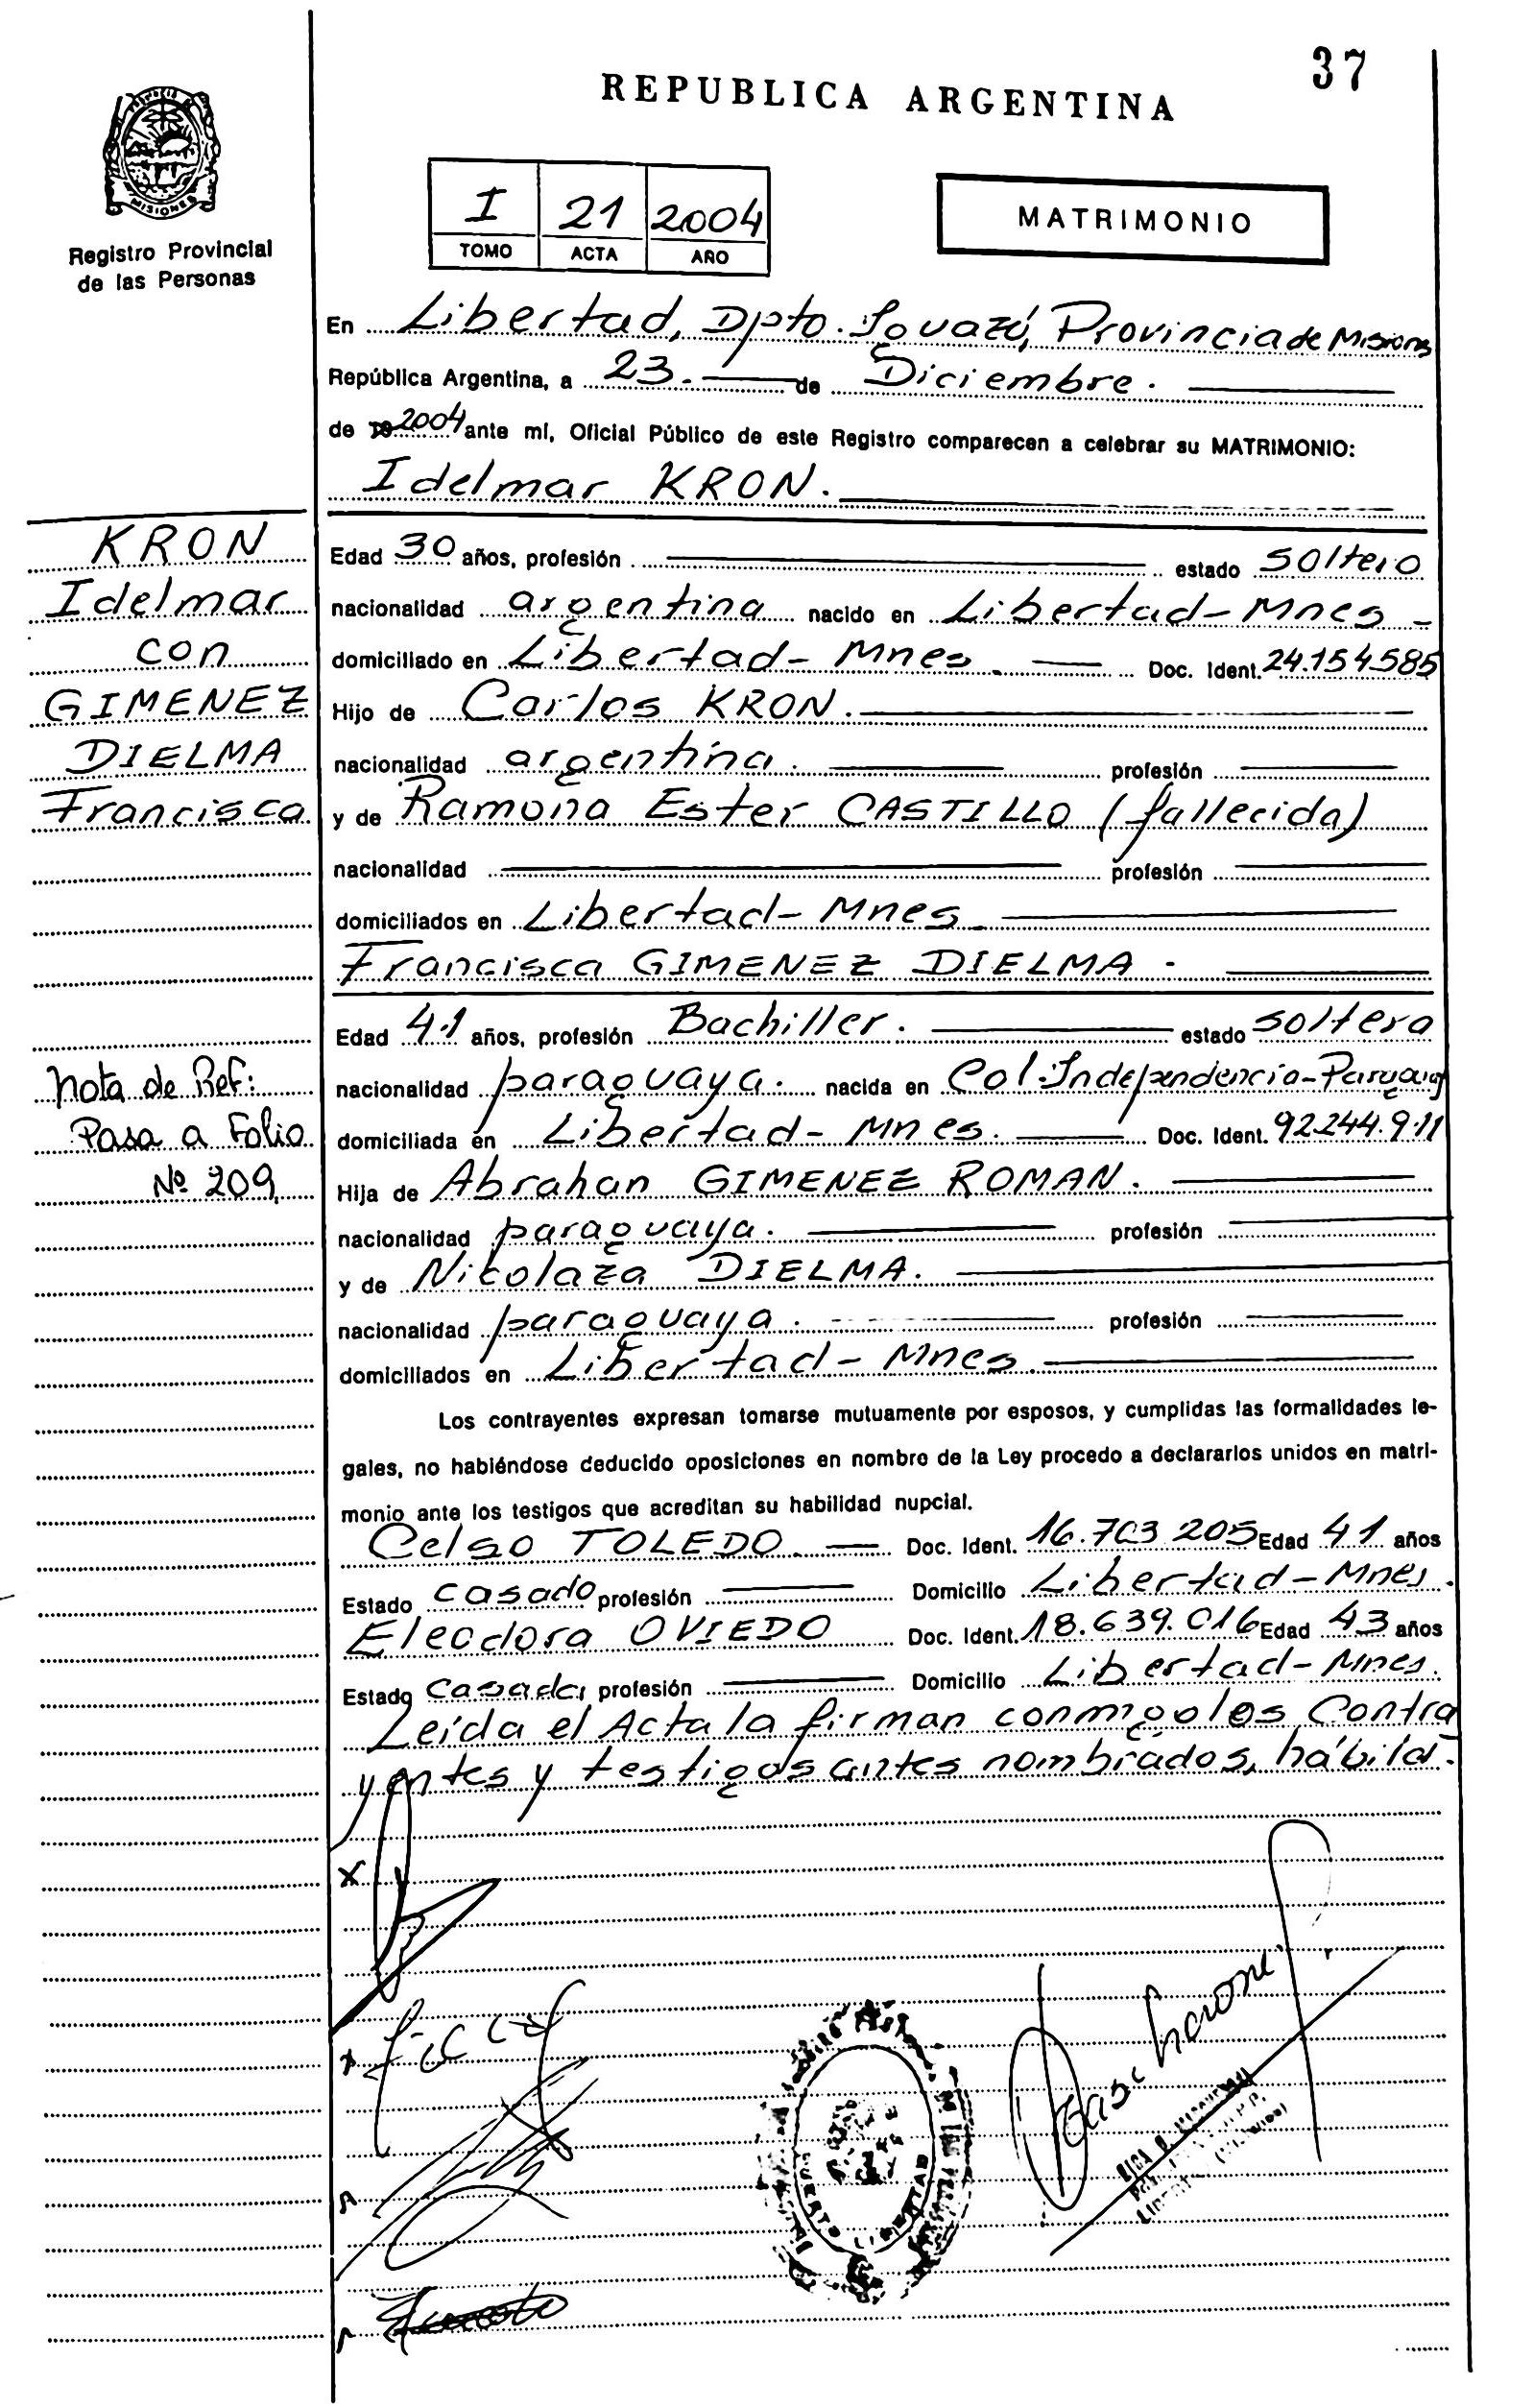 37
REPUBLICA ARGENTINA
MISIONES
Registro Provincial
de las Personas
I 21 2004
TOMO ACTA AÑO
MATRIMONIO
En Libertad, Dpto. Iguazú, Provincia de Misiones
República Argentina, a 23. de Diciembre.
de 2004 ante mí, Oficial Público de este Registro comparecen a celebrar su MATRIMONIO:
Idelmar KRON.
KRON
Idelmar
con
GIMENEZ
DIELMA
Francisca
Edad 30 años, profesión estado soltero
nacionalidad argentina nacido en Libertad-Mnes-
domiciliado en Libertad-Mnes. Doc. Ident. 24.154.585
Hijo de Carlos KRON.
nacionalidad argentina. profesión
y de Ramona Ester CASTILLO (fallecida)
nacionalidad profesión
domiciliados en Libertad-Mnes.
Francisca GIMENEZ DIELMA.
Nota de Ref:
Pasa a Folio
Nº 209
Edad 41 años, profesión Bachiller. estado soltera
nacionalidad paraguaya. nacida en Col. Independencia-Paraguay
domiciliada en Libertad-Mnes. Doc. Ident. 92.244.911
Hija de Abrahan GIMENEZ ROMAN.
nacionalidad paraguaya. profesión
y de Nicolaza DIELMA.
nacionalidad paraguaya. profesión
domiciliados en Libertad-Mnes.
Los contrayentes expresan tomarse mutuamente por esposos, y cumplidas las formalidades le-
gales, no habiéndose deducido oposiciones en nombre de la Ley procedo a declararlos unidos en matri-
monio ante los testigos que acreditan su habilidad nupcial.
Celso TOLEDO. Doc. Ident. 16.703.205 Edad 41 años
Estado casado profesión Domicilio Libertad-Mnes.
Eleodora OVIEDO Doc. Ident. 18.639.016 Edad 43 años
Estado casada profesión Domicilio Libertad-Mnes.
Leída el Acta la firman conmigo los Contra
yentes y testigos antes nombrados, hábild.
PUERTO LIBERTAD